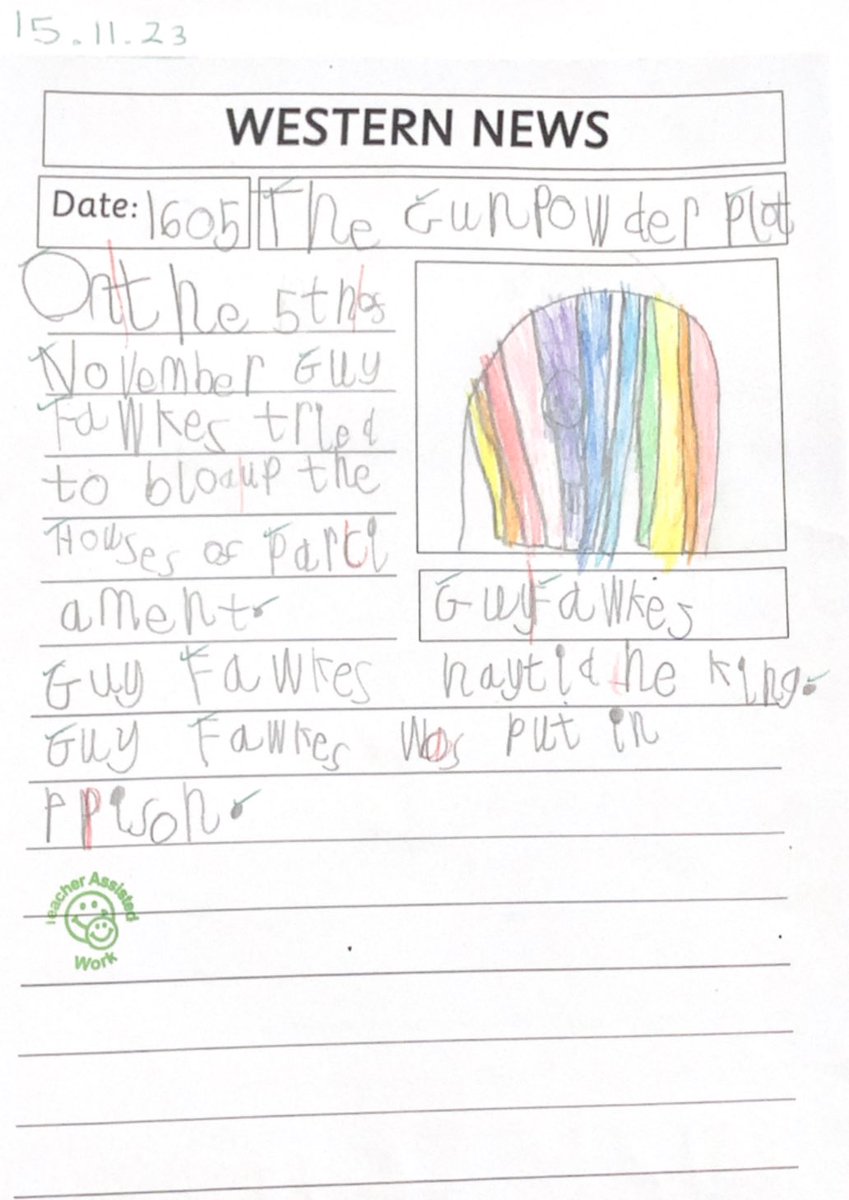 15.11.23
WESTERN NEWS
Date: 1605 The Gunpowder Plot
On the 5th of
November Guy
Fawkes tried
to bloa up the
Houses of Parli
ament.
Guy Fawkes
Guy Fawkes haytid the king.
Guy Fawkes was put in
Ppison.
Teacher Assisted
Work